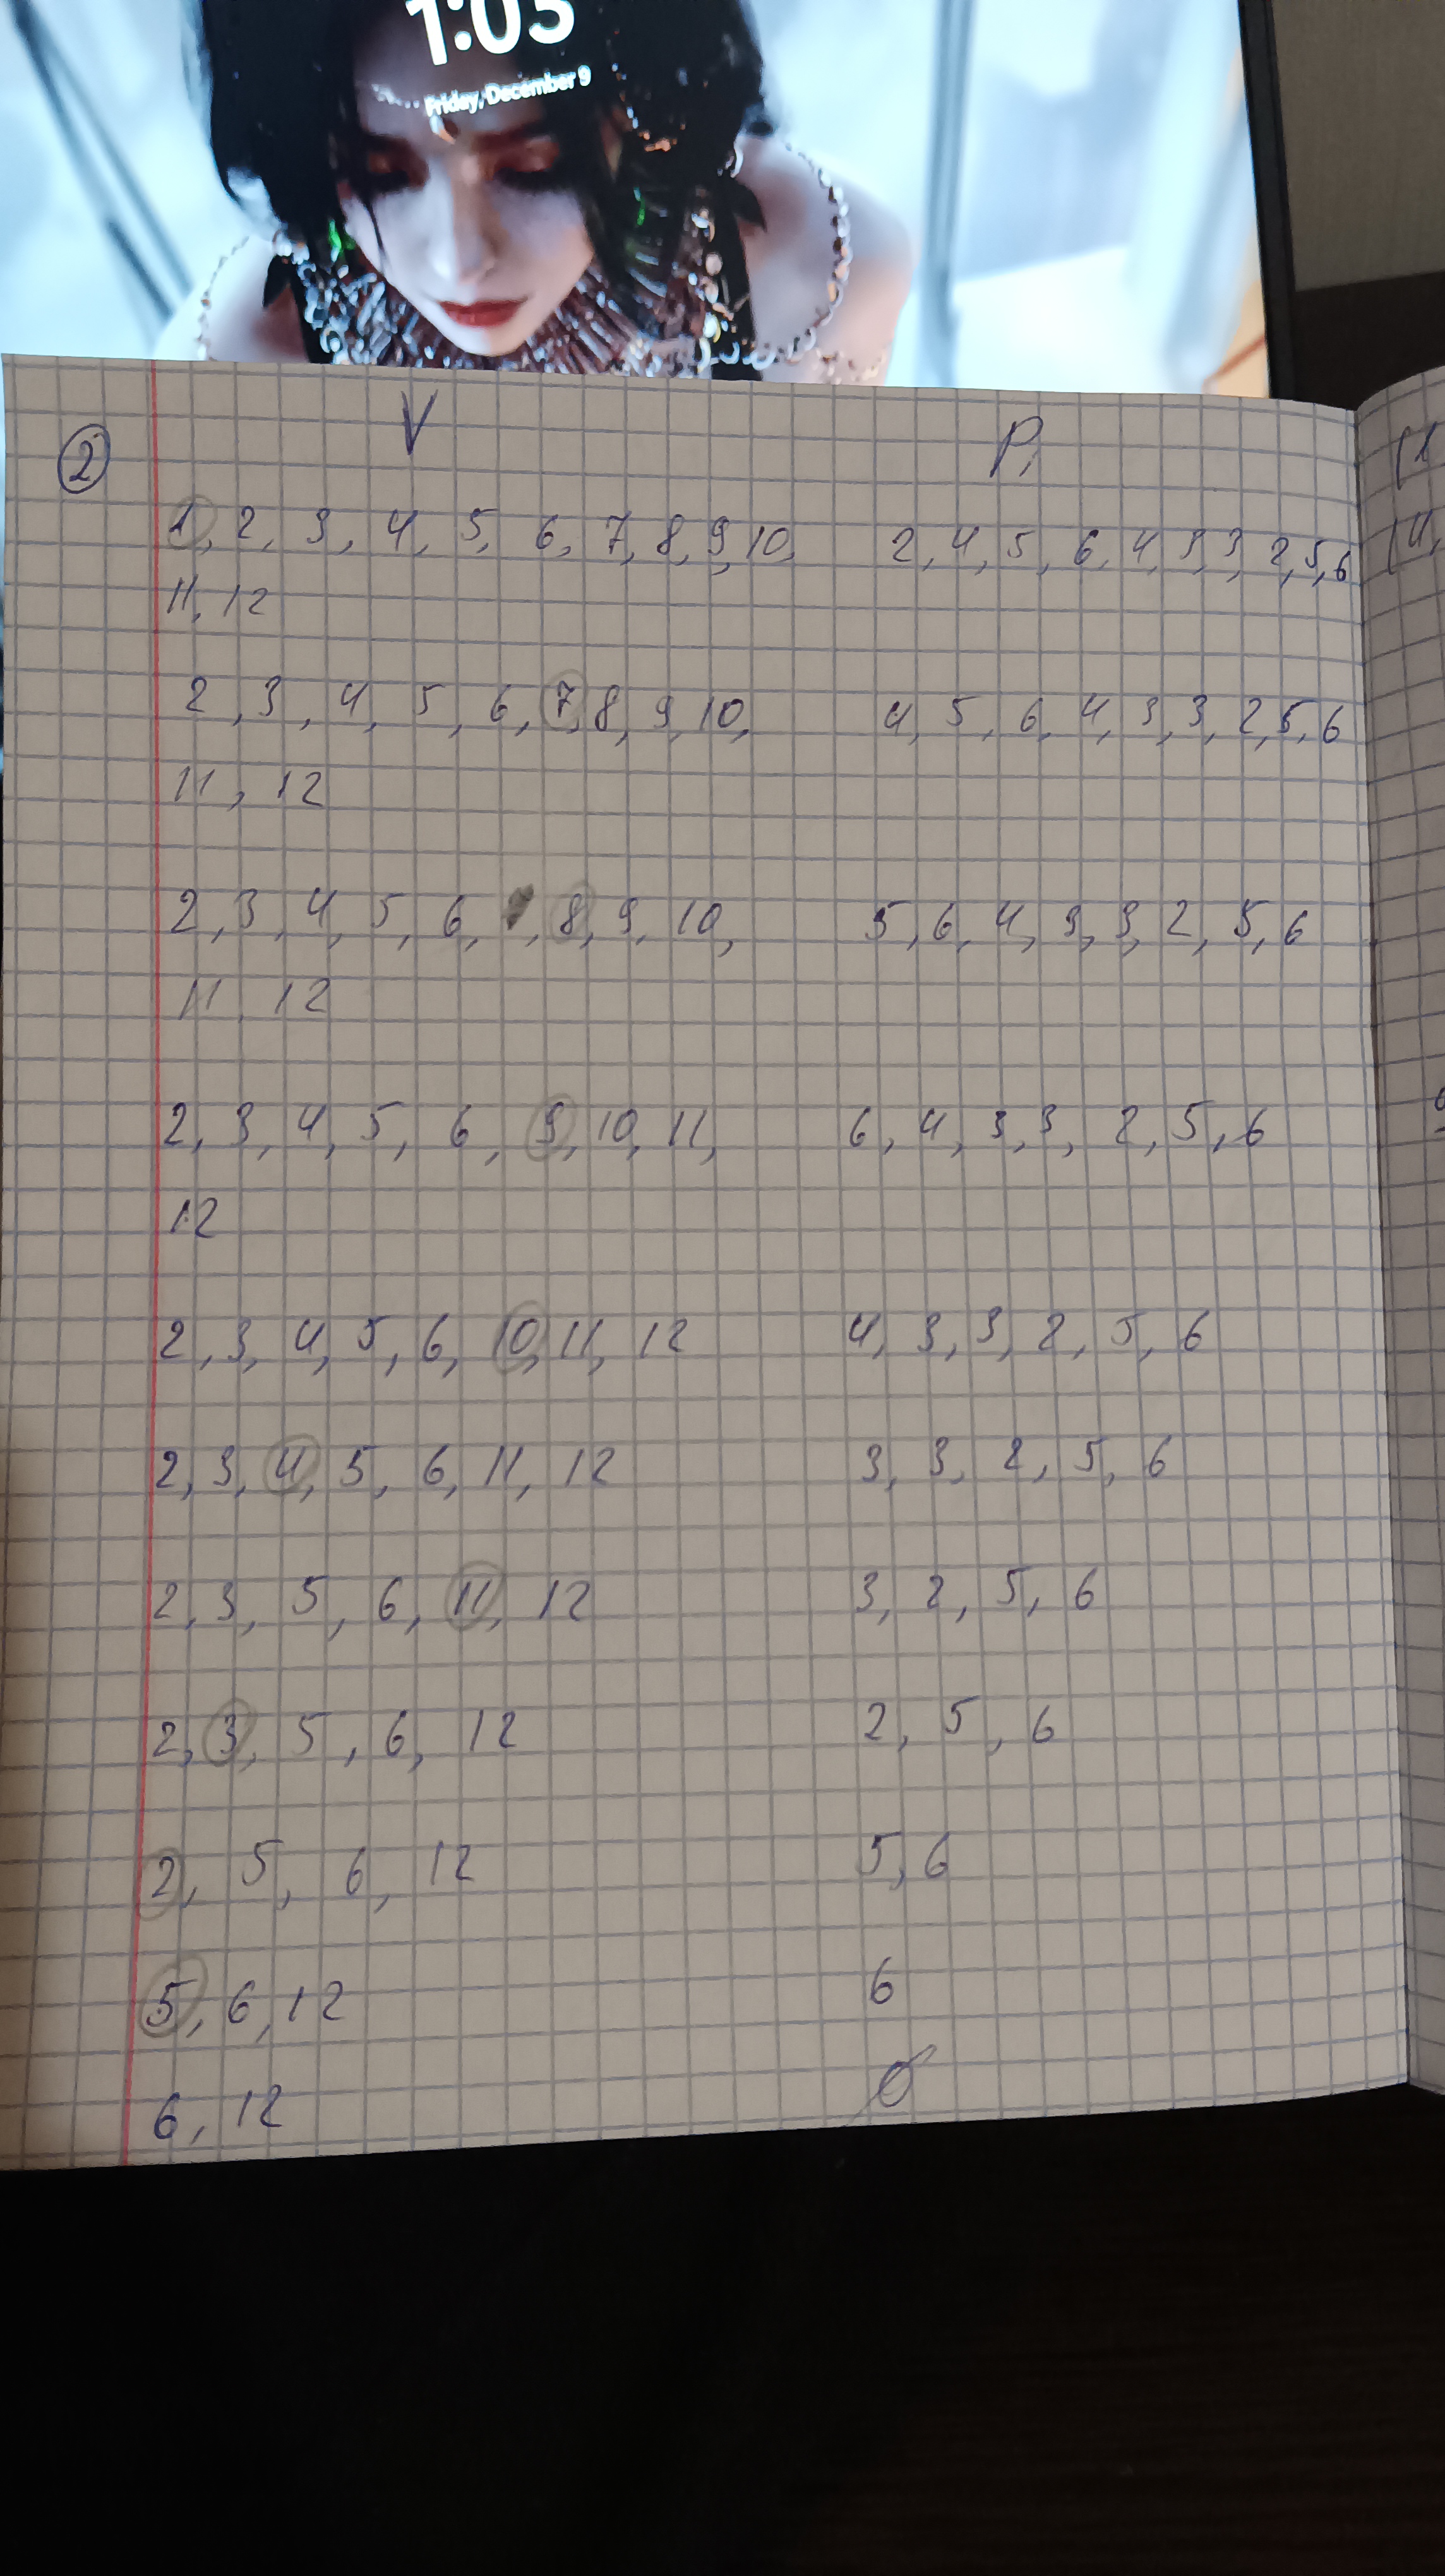 1:05
Friday, December 9
V P,
② 1, 2, 3, 4, 5, 6, 7, 8, 9, 10, 2, 4, 5, 6, 4, 3, 3, 2, 5, 6
11, 12
2, 3, 4, 5, 6, 7, 8, 9, 10, 4, 5, 6, 4, 3, 3, 2, 5, 6
11, 12
2, 3, 4, 5, 6, , 8, 9, 10, 5, 6, 4, 3, 3, 2, 5, 6
11, 12
2, 3, 4, 5, 6, 9, 10, 11, 6, 4, 3, 3, 2, 5, 6
12
2, 3, 4, 5, 6, 10, 11, 12 4, 3, 3, 2, 5, 6
2, 3, 4, 5, 6, 11, 12 3, 3, 2, 5, 6
2, 3, 5, 6, 11, 12 3, 2, 5, 6
2, 3, 5, 6, 12 2, 5, 6
2, 5, 6, 12 5, 6
5, 6, 12 6
6, 12 Ø